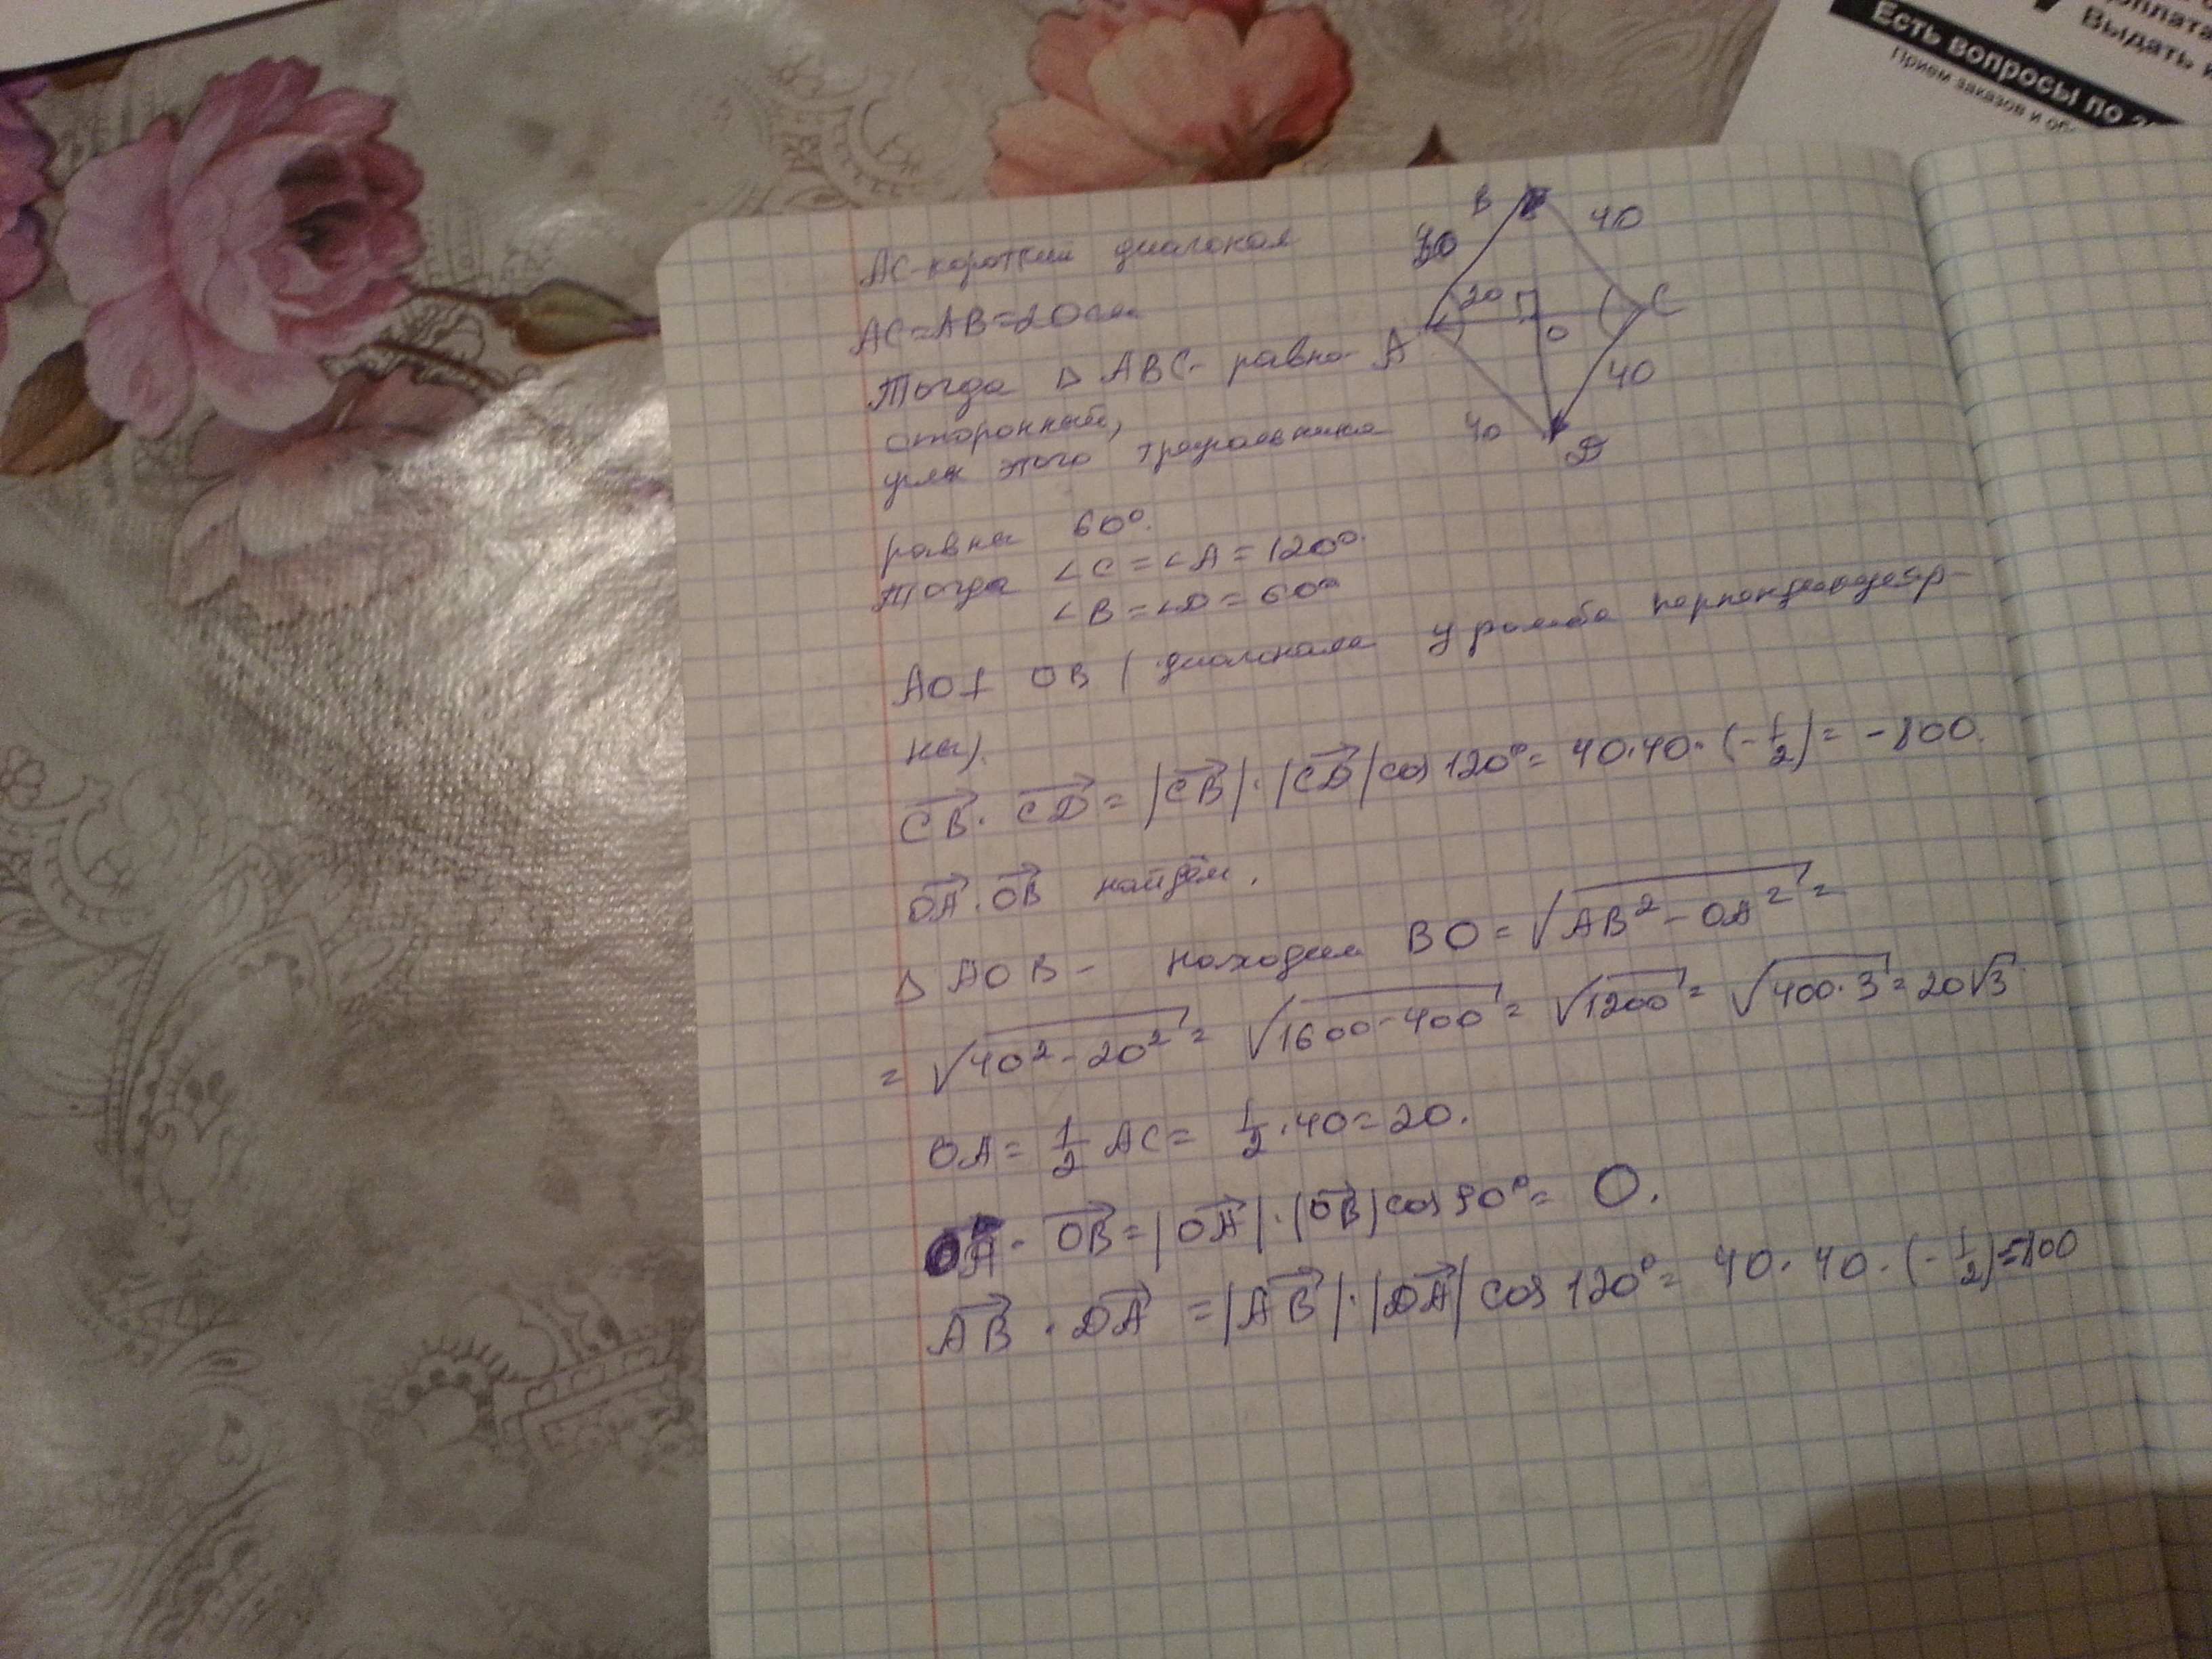 оплата
Выдать
Есть вопросы по
Прием заказов и
B
40
40
20
C
O
A
40
40
D
AC-короткая диагональ
AC=AB=20см
Тогда △ ABC- равно-
сторонный,
углы этого треугольника
равны 60°.
Тогда ∠C=∠A=120°.
∠B=∠D=60°
AO⊥ OB (диагонали у ромба перпендикуляр-
ны).
CB⃗ · CD⃗ = |CB⃗|·|CD⃗|cos 120°= 40·40·(-1/2)= -800.
OA⃗ · OB⃗ найдём.
△ AOB - находим BO=√(AB²-OA²)=
=√(40²-20²)= √(1600-400)= √1200= √(400·3)=20√3.
OA= 1/2 AC= 1/2 ·40=20.
OA⃗ · OB⃗=|OA⃗|·|OB⃗|cos 90°= 0.
AB⃗ · DA⃗ =|AB⃗|·|DA⃗| cos 120°= 40·40·(-1/2)=-800